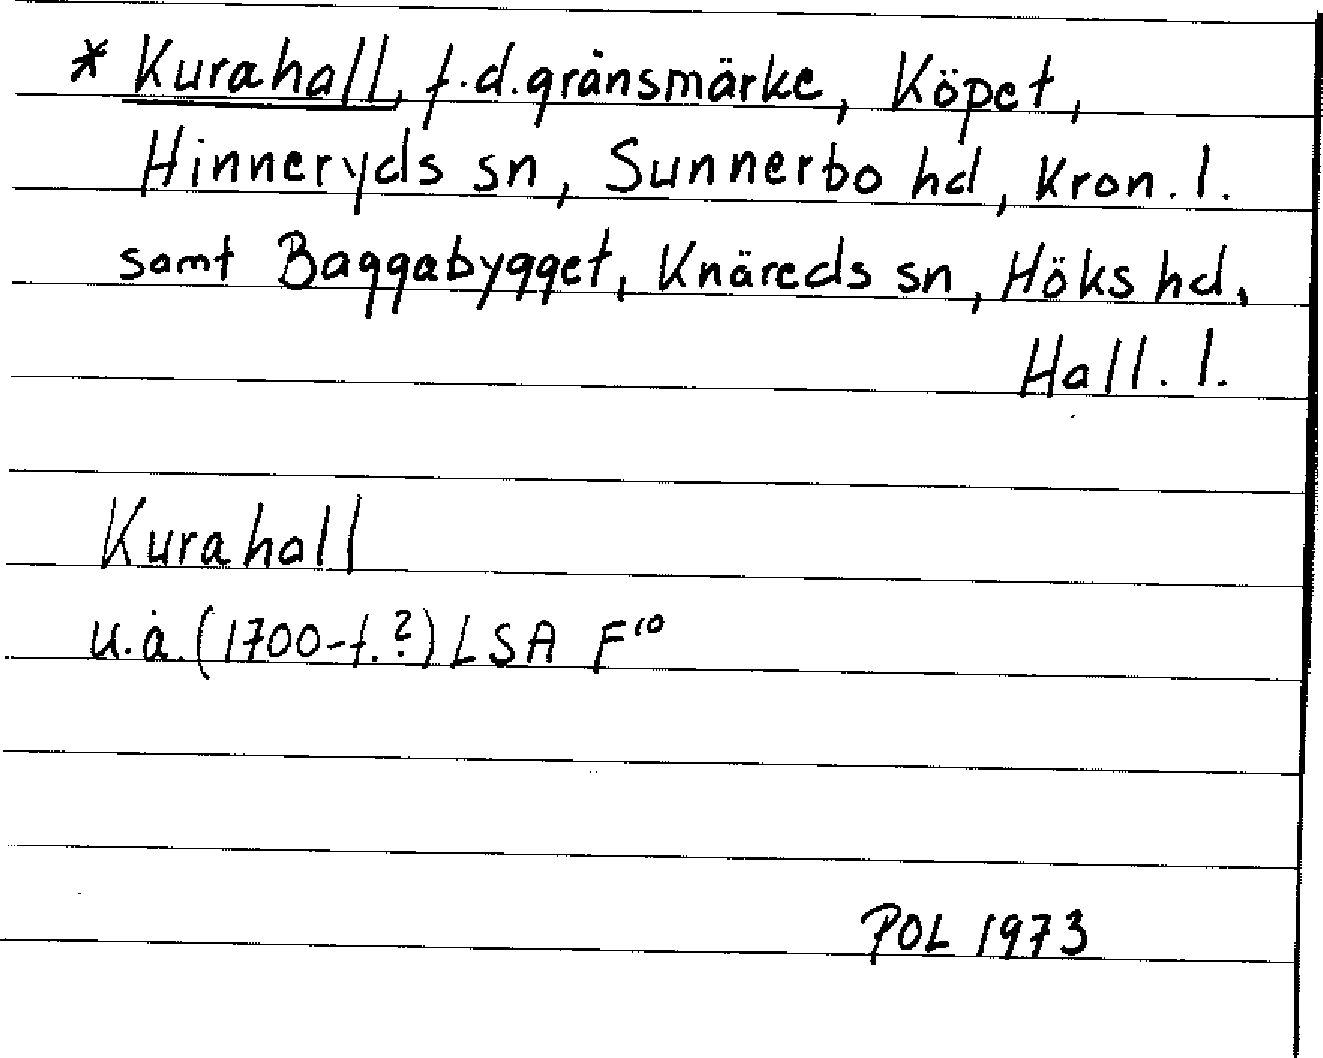 * Kurahall, f.d. gränsmärke, Köpet,
Hinneryds sn, Sunnerbo hd, Kron. l.
samt Baggabygget, Knäreds sn, Höks hd,
Hall. l.
Kurahall
u.å. (1700-t.?) LSA F¹⁰
POL 1973